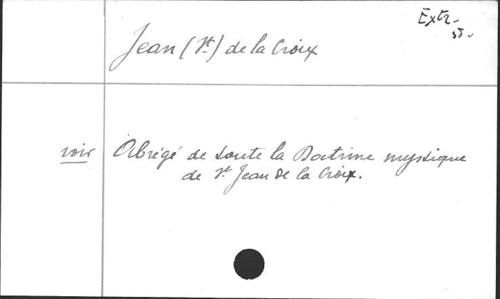 Extr.
Jean (St.) de la Croix
voir Abrégé de toute la Doctrine mystique
de St Jean de la Croix.